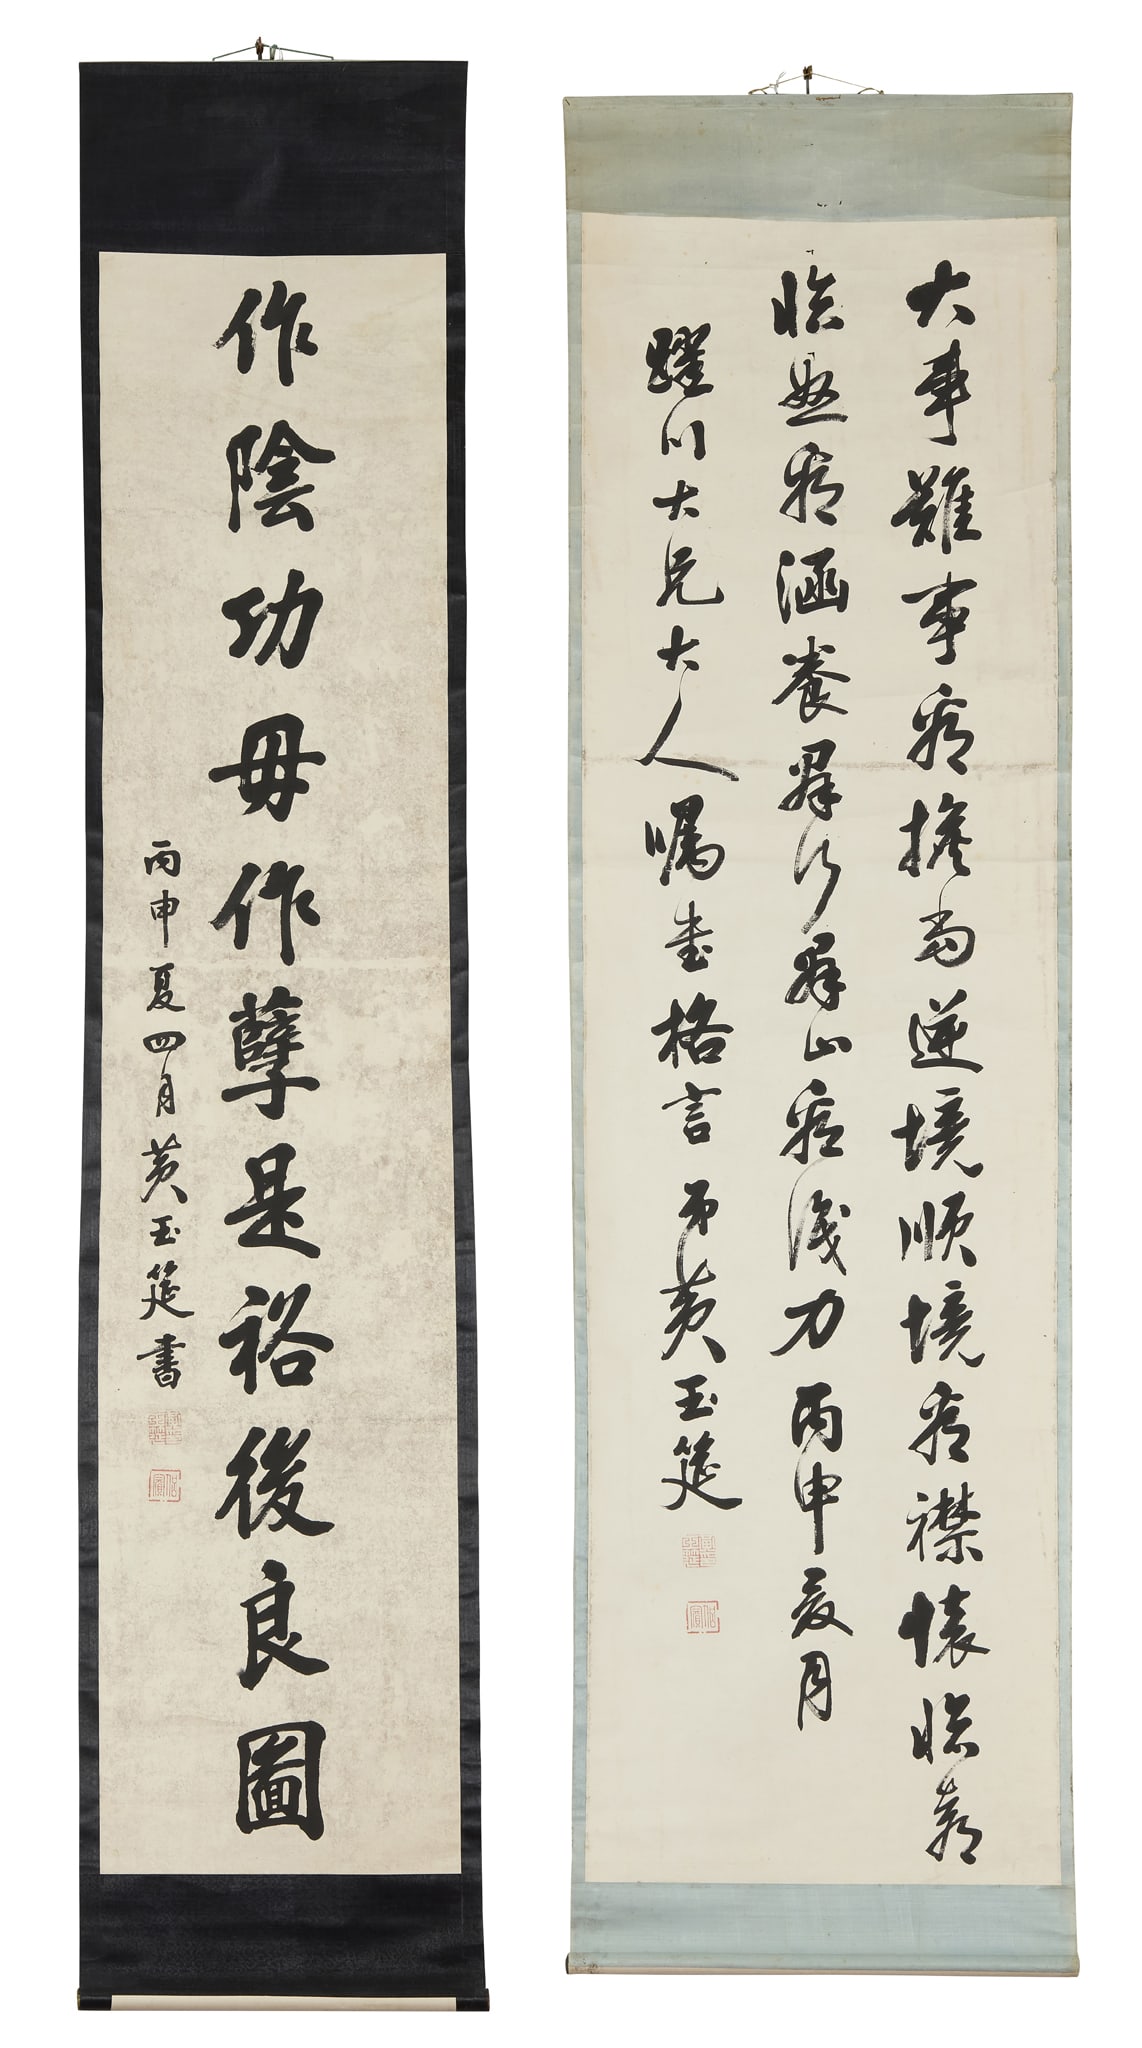 大事難事看擔當逆境順境看襟懷臨喜
臨怒看涵養群行群止看識力丙申夏月
躍川大兄大人囑書格言弟黃玉筵
作陰功毋作孽是裕後良圖
丙申夏四月黃玉筵書